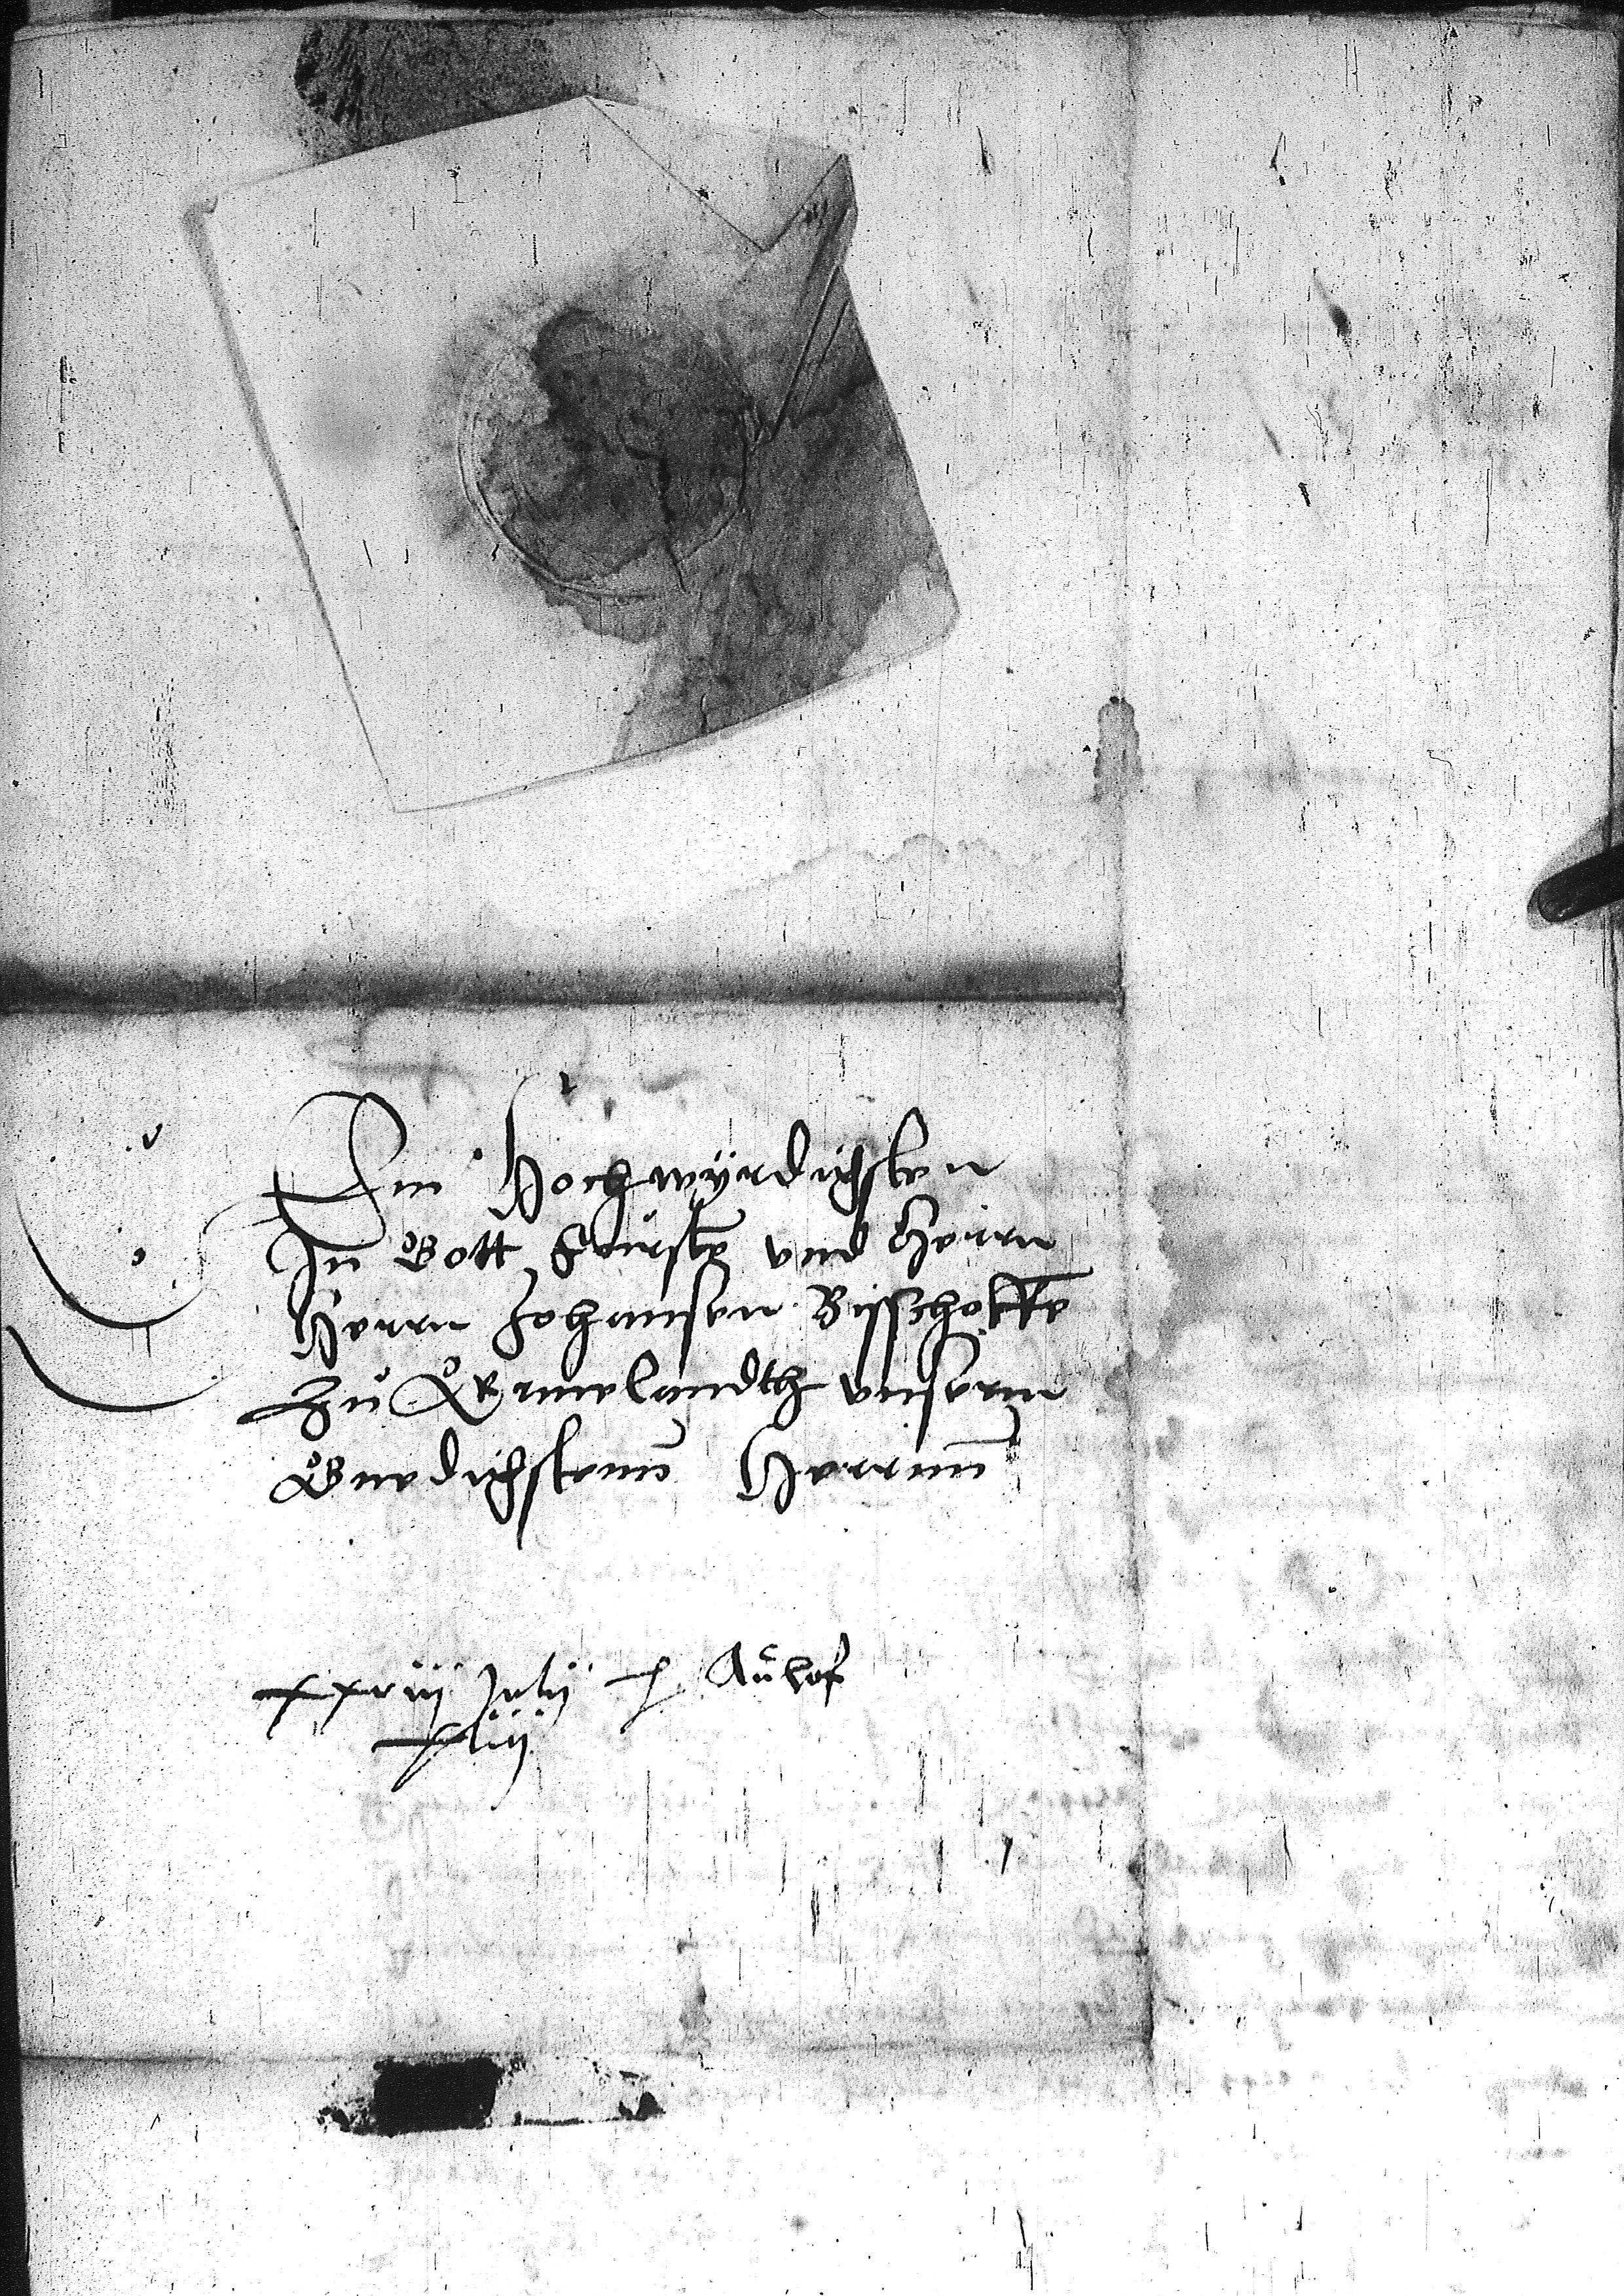 Dem Hochwyrdigsten
In Gott Fürsten und Herrn
Herrn Johansen Bisschoffe
Zu Ermelandth unserm
Gnedigstenn Herrnn
xxviij Julij
xliij